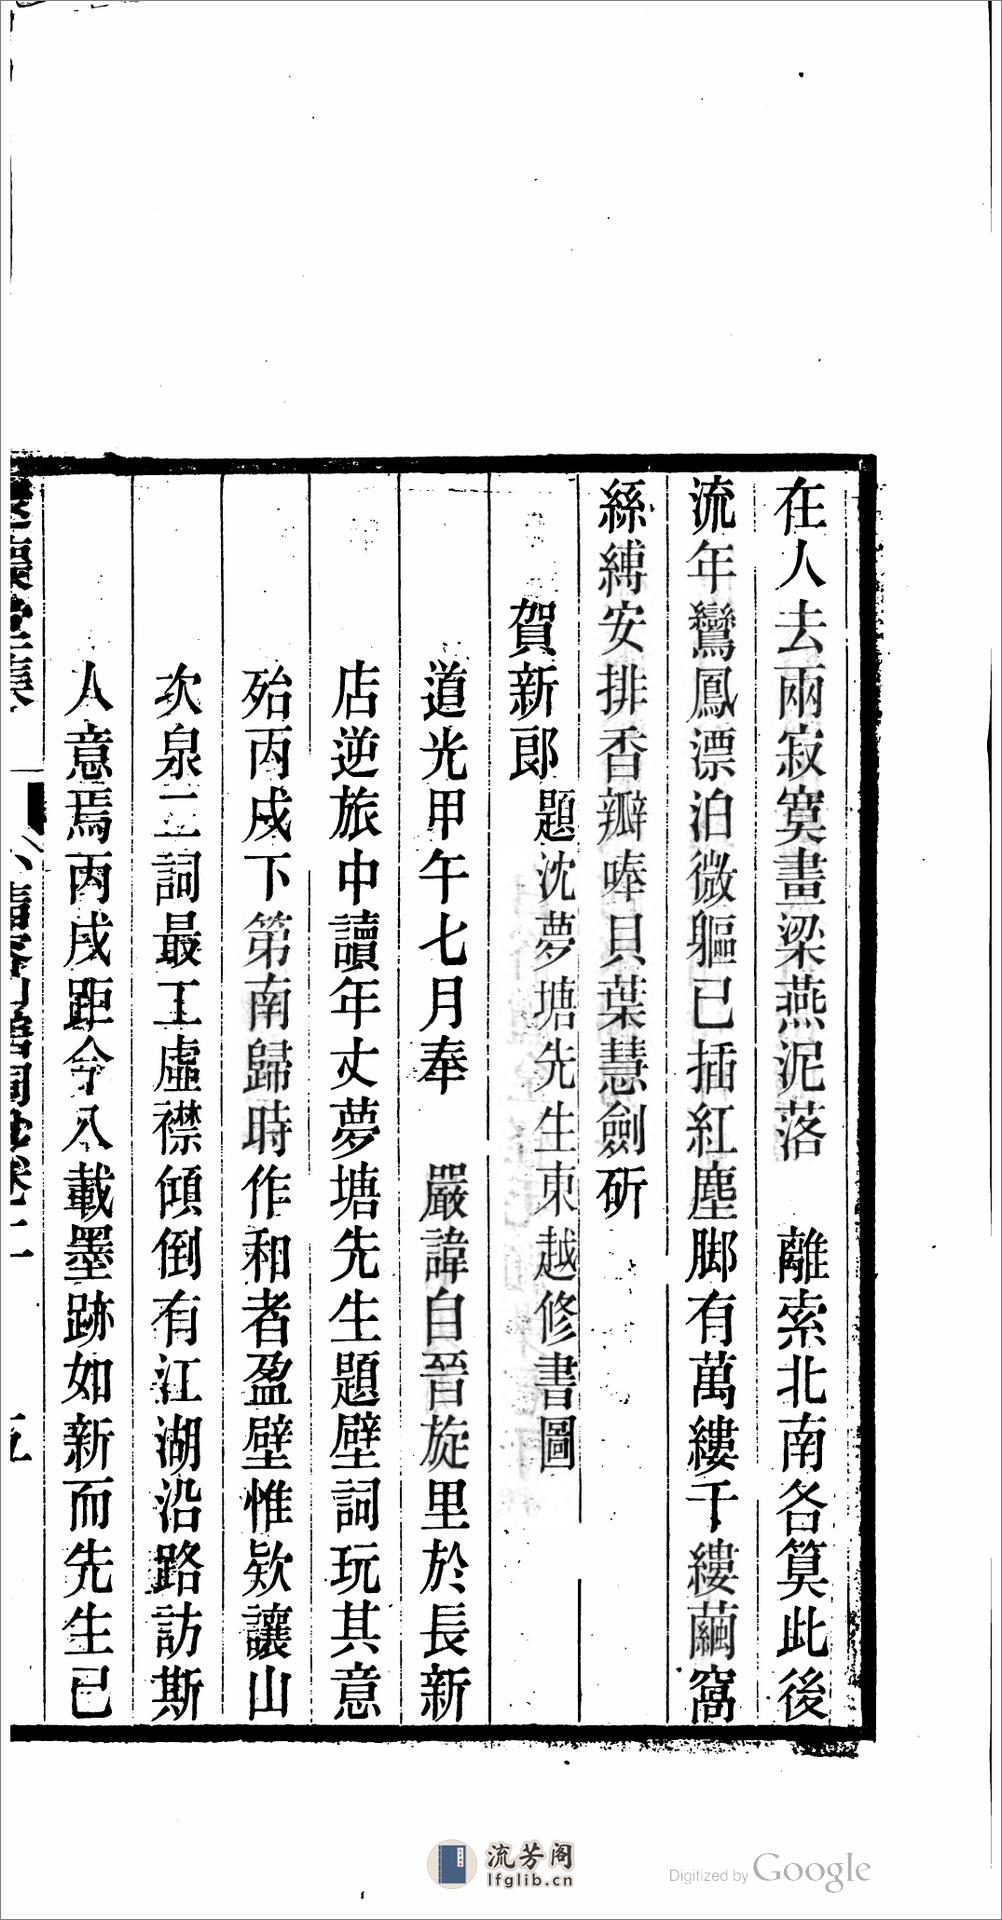 在人去兩寂寞畫梁燕泥落　離索北南各算此後
流年鸞鳳漂泊微軀已插紅塵脚有萬縷千縷繭窩
絲縛安排香瓣唪貝葉慧劍斫
賀新郎　題沈夢塘先生東越修書圖
道光甲午七月奉　嚴諱自晉旋里於長新
店逆旅中讀年丈夢塘先生題壁詞玩其意
殆丙戌下第南歸時作和者盈壁惟歎讓山
次泉二詞最工虛襟傾倒有江湖沿路訪斯
人意焉丙戌距今八載墨跡如新而先生已
五
流芳阁
lfglib.cn
Digitized by Google